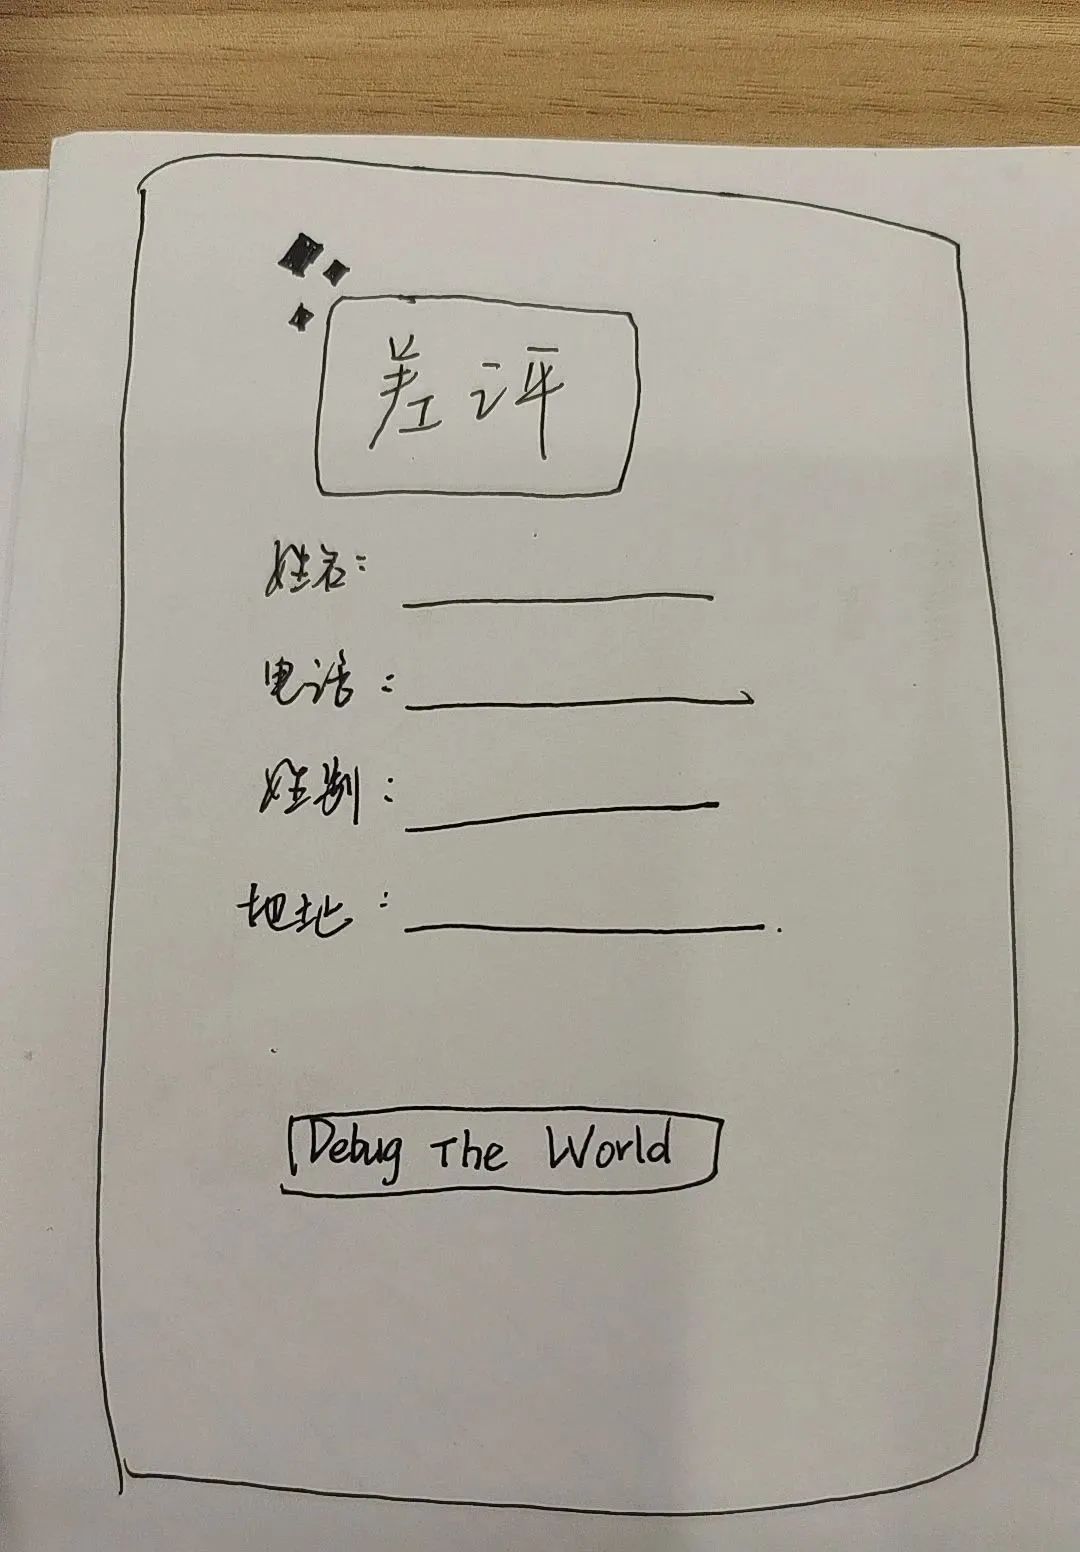 差评
姓名：
电话：
姓别：
地址：
Debug The World